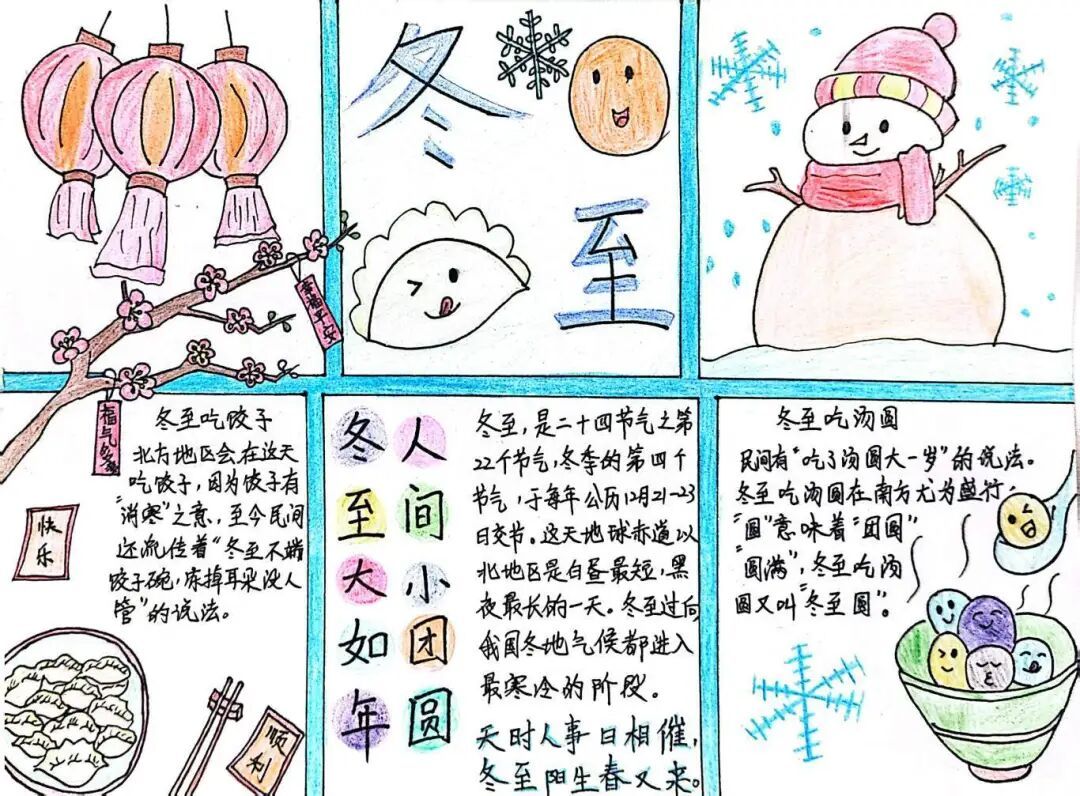 冬
至
幸福平安
福气
冬至吃饺子
北方地区会在这天
吃饺子，因为饺子有
“消寒”之意，至今民间
还流传着“冬至不端
饺子碗，冻掉耳朵没人
管”的说法。
快乐
顺利
冬至大如年
人间小团圆
冬至，是二十四节气之第
22个节气，冬季的第四个
节气，于每年公历12月21-23
日交节。这天地球赤道以
北地区是白昼最短，黑
夜最长的一天。冬至过向
我国冬地气候都进入
最寒冷的阶段。
天时人事日相催，
冬至阳生春又来。
冬至吃汤圆
民间有“吃了汤圆大一岁”的说法。
冬至吃汤圆在南方尤为盛行，
“圆”意味着“团圆”
“圆满”，冬至吃汤
圆又叫“冬至圆”。